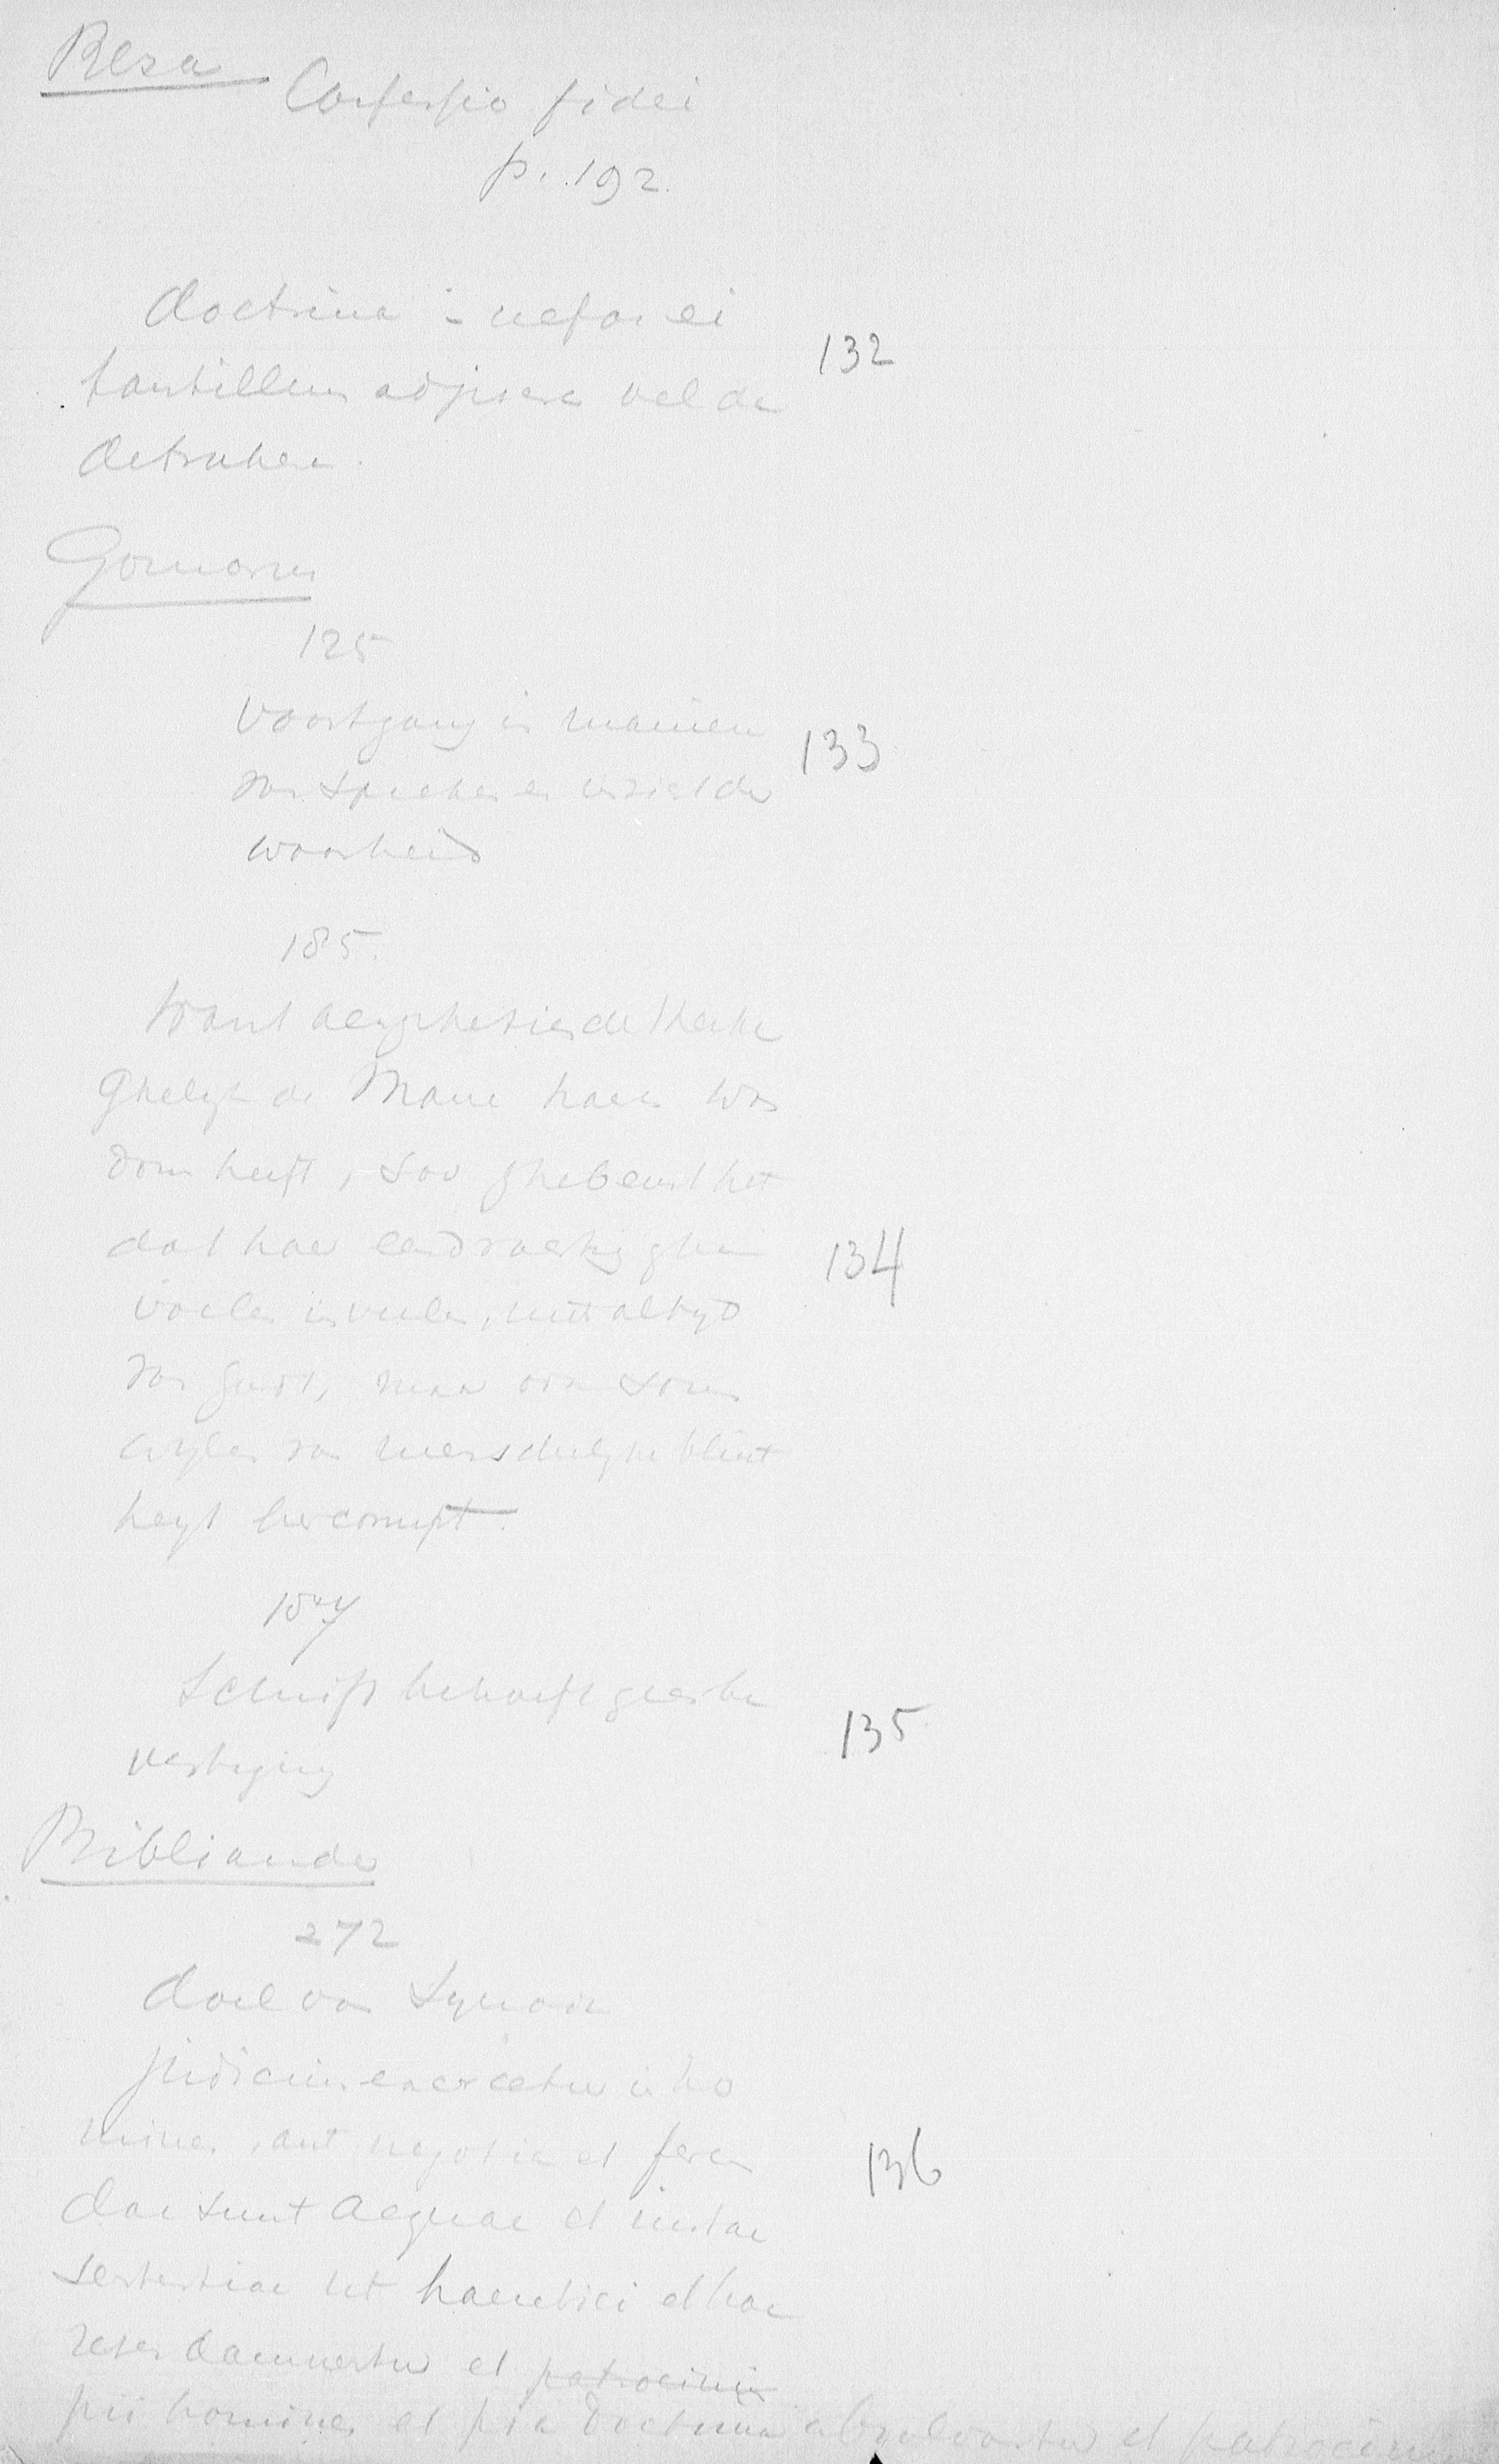 Beza
Confessio fidei
p. 192.
doctrina - nefas ei
132
tantillum adjicere vel de
detrahere.
Gomarus
125
voortgang in manier
133
van spreken en in zielde
waarheid
185.
Want aenghesien de Kerke
Ghelyk de Mane haer was
dom heeft, soo ghebeurt het
dat haer eendrachtig ghe
134
voelen in veelen, niet altyd
van Godt, maer oock som
wylen van menschelyke blint
heyt hercompt.
187
Schrift behoeft geen be
135
vestiging
Bibliander
272
doel van Synode
judicium exercetur in ho
mines, aut negotia et feren
136
dae sunt aequae et iustae
sententiae ut haeretici et hae
reses damnentur et patrocinium
pii homines et pia doctrina absolvantur et